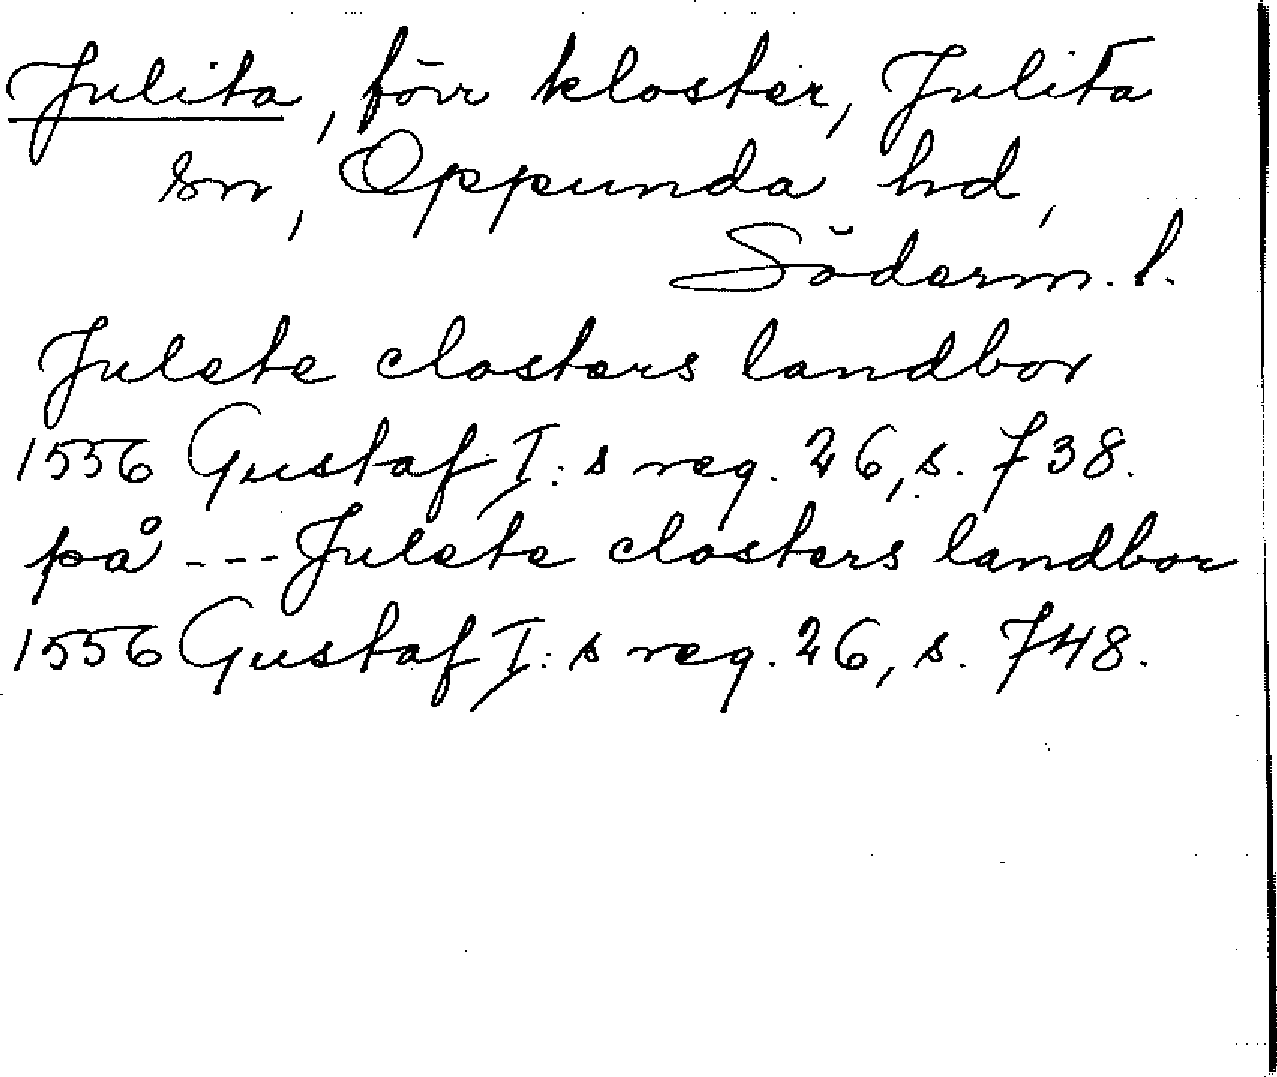 Julita, förr kloster, Julita
sn, Oppunda hd,
Söderm. l.
Julete closters landbor
1556 Gustaf I:s reg. 26, s. 738.
på --- Julete closters landbor
1556 Gustaf I:s reg. 26, s. 748.